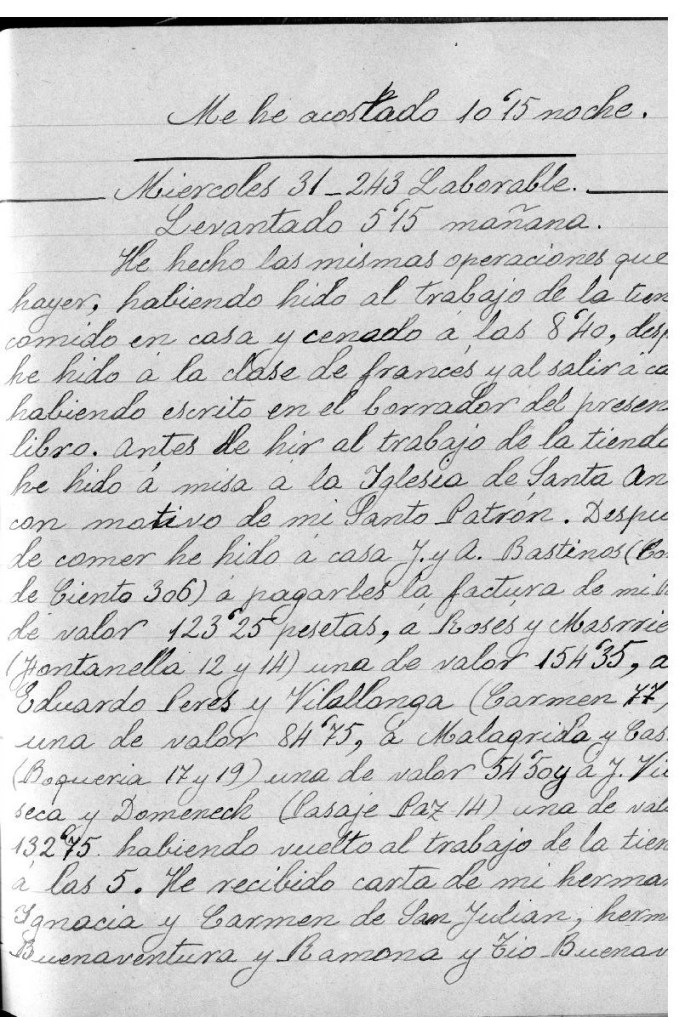 Me he acostado 10'15 noche.
Miercoles 31_243 Laborable.
Levantado 5'15 mañana.
He hecho las mismas operaciones que
hayer, habiendo hido al trabajo de la tien
comido en casa y cenado á las 8'40, desp
he hido á la clase de francés y al salir á ca
habiendo escrito en el borrador del presen
libro. Antes de hir al trabajo de la tienda
he hido á misa á la Iglesia de Santa An
con motivo de mi Santo Patrón. Despu
de comer he hido á casa J. y A. Bastinos (Co
de Ciento 306) á pagarles la factura de mi
de valor 123'25 pesetas, á Rosés y Masrrie
(Fontanella 12 y 14) una de valor 154'35, a
Eduardo Peres y Vilallonga (Carmen 77,
una de valor 84'75, á Malagrida y Cas
(Boqueria 17 y 19) una de valor 54'50 y á J. Vi
seca y Domenech (Pasaje Paz 14) una de val
132'75. habiendo vuelto al trabajo de la tien
á las 5. He recibido carta de mi herma
Ignacia y Carmen de San Julian, herm
Buenaventura y Ramona y Tio Buenav